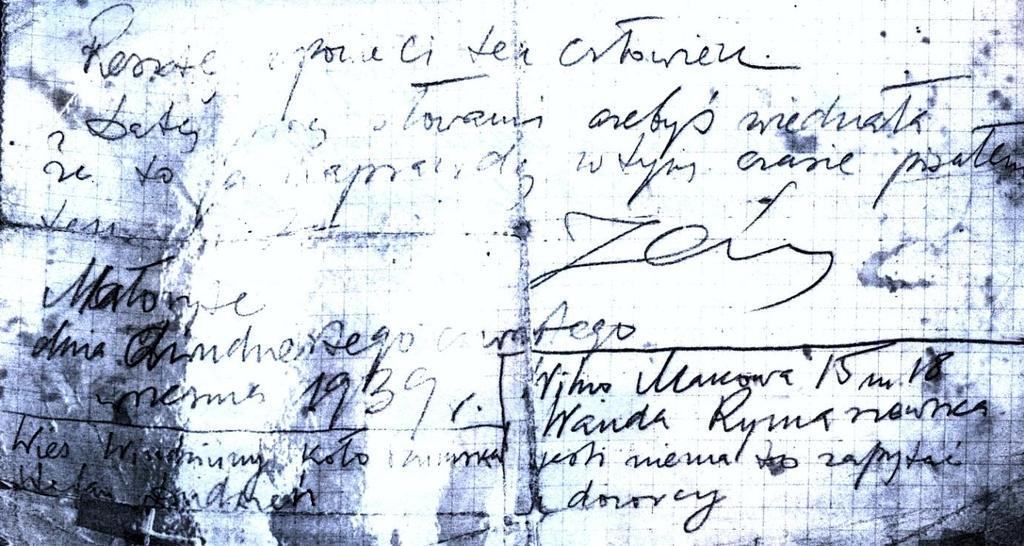 Resztę opowie Ci ten człowiek.
Datę słowami ażebyś wiedziała
że to ja naprawdę w tym czasie pisałem
ten
Małoryte
dnia dwudziestego czwartego
września 1939 r.
Wieś koło
Wilno Makowa 15 m 18
Wanda Rymaszewska
jeśli niema to zapytać
dozorcy